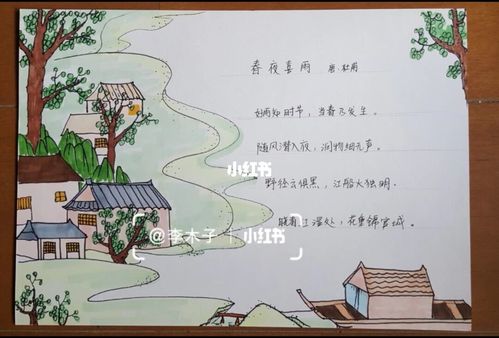 春夜喜雨 唐·杜甫
好雨知时节，当春乃发生。
随风潜入夜，润物细无声。
小红书
野径云俱黑，江船火独明。
晓看红湿处，花重锦官城。
@李木子 | 小红书